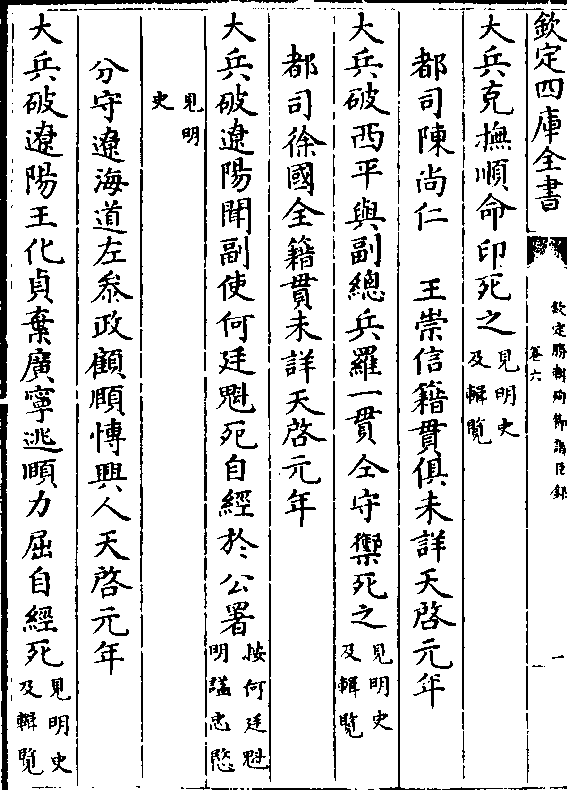 欽定四庫全書
欽定勝朝殉節諸臣錄
卷六
一
大兵克撫順命印死之見明史
及輯覽
都司陳尚仁　王崇信籍貫俱未詳天啓元年
大兵破西平與副總兵羅一貫仝守禦死之見明史
及輯覽
都司徐國全籍貫未詳天啓元年
大兵破遼陽聞副使何廷魁死自經於公署按何廷魁
明諡忠愍
見明
史
分守遼海道左叅政顧頤愽興人天啓元年
大兵破遼陽王化貞棄廣寧逃頤力屈自經死見明史
及輯覽